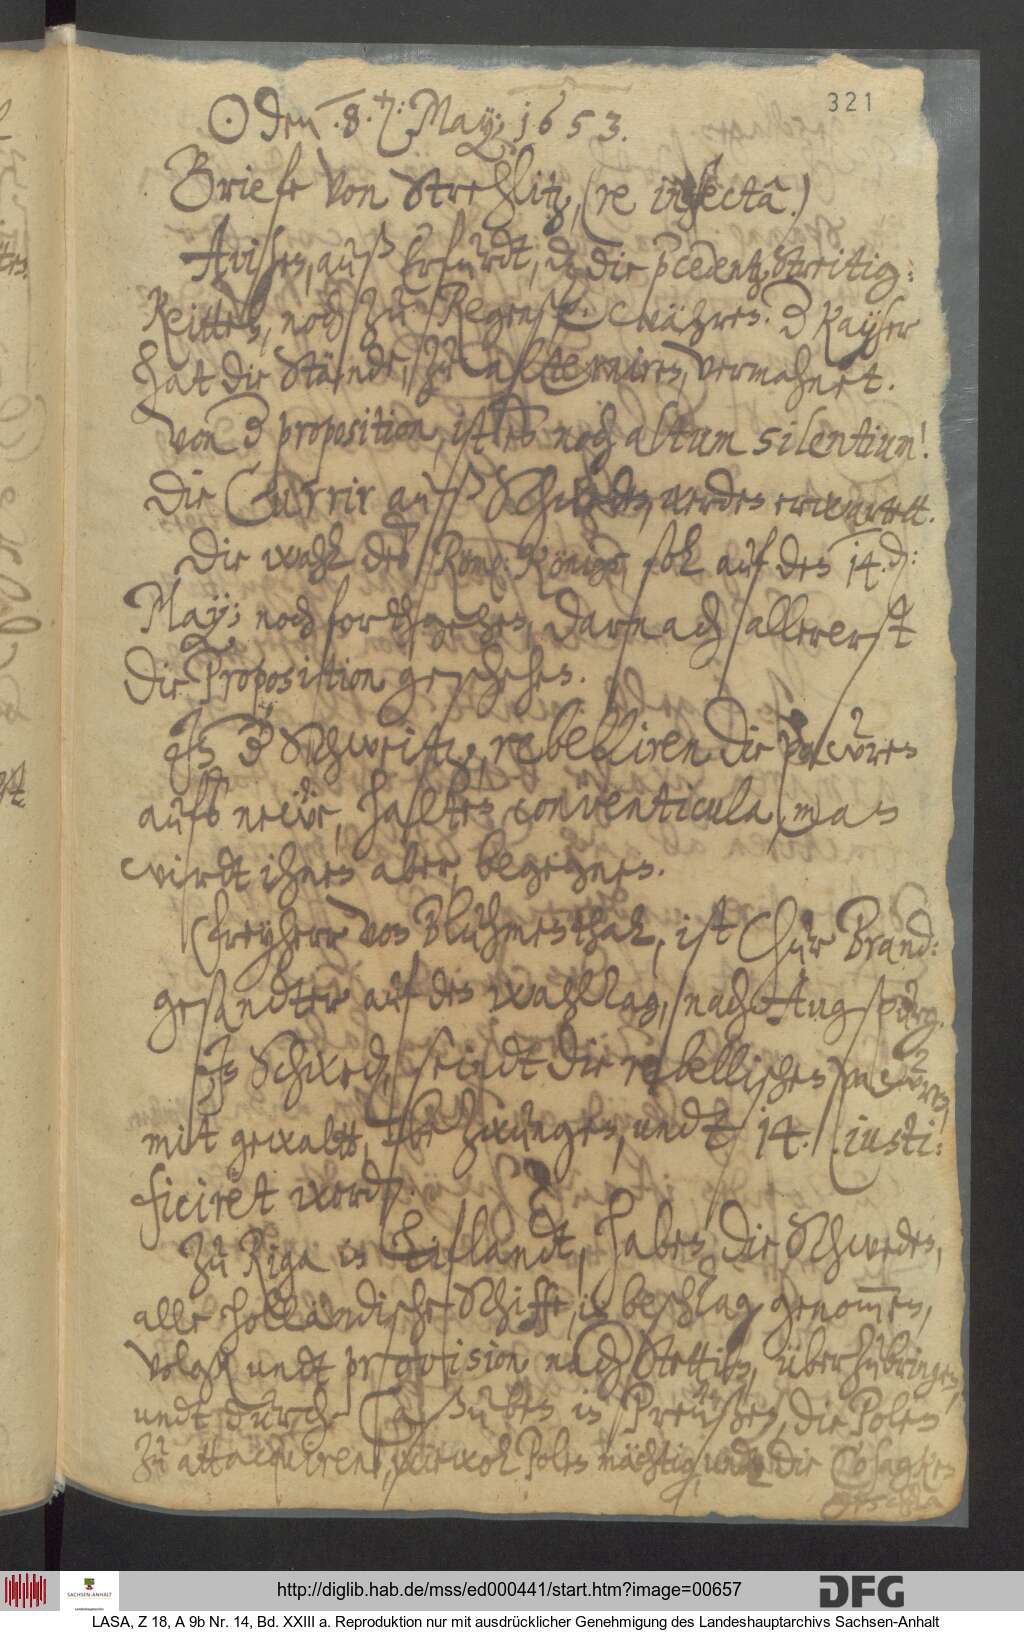 321
⊙ den 8.t: May: 1653.
Briefe von Strehlitz, (re infectâ.)
Avisen, auß Erfurdt, daß die præcedentz Streitig:
Keitten, noch zu Regensp. währen. der Kayser
hat die Stände, zu alterniren, vermahnet.
Von der proposition, ist es noch altum silentium!
Die Currir auß Schweden, werden erwartet.
Die wahl des Röm: Königs, soll auf den 14.d:
May: noch forthgehen, darnach allererst
die Proposition geschehen.
In der Schweitz, rebelliren die pawren
aufs neẅe, halten conventicula, was
wirdt ihnen aber, begegnen.
Freyherr von Bluhmenthal, ist Chur Brand:
gesandter auf den wahlTag, nach Augspurg.
In Schwed. seindt die rebellischen pawren,
mit gewaltt, bezwungen, undt 14. iusti:
ficiret word.
Zu Riga in Lifflandt, haben, die Schweden,
alle holländische Schiffe, in beschlag genommen,
Volgk undt provision nach Stettin, überzubringen,
undt durch Caßuben in Preußen, die Polen
zu attacquiren, wiewol Polen mächtig, und die Cosagken
http://diglib.hab.de/mss/ed000441/start.htm?image=00657
SACHSEN-ANHALT
DFG
LASA, Z 18, A 9b Nr. 14, Bd. XXIII a. Reproduktion nur mit ausdrücklicher Genehmigung des Landeshauptarchivs Sachsen-Anhalt